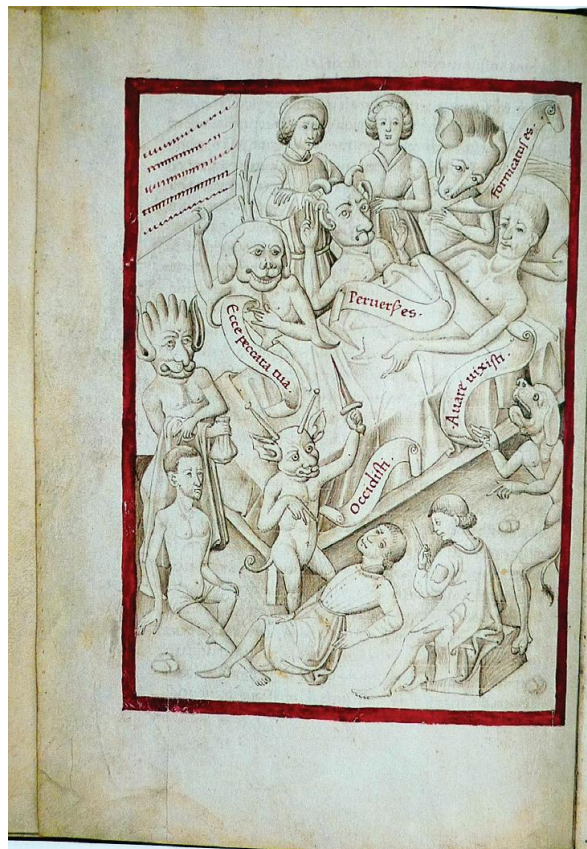 fornicatus es.
Peruerſ es.
Ecce peccata tua.
Auare uixiſti.
Occidiſti.